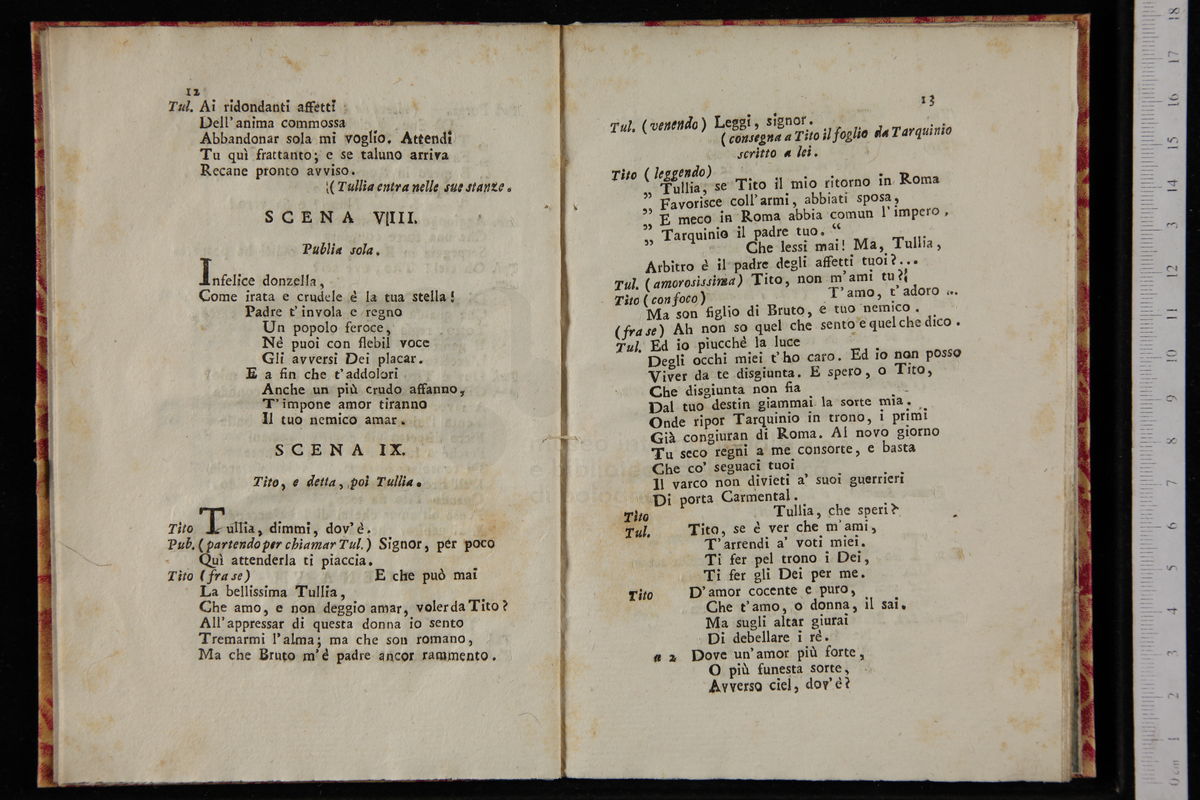 12
Tul. Ai ridondanti affetti
Dell'anima commossa
Abbandonar sola mi voglio. Attendi
Tu quì frattanto; e se taluno arriva
Recane pronto avviso.
(Tullia entra nelle sue stanze.
SCENA VIII.
Publia sola.
Infelice donzella,
Come irata e crudele è la tua stella!
Padre t'invola e regno
Un popolo feroce,
Nè puoi con flebil voce
Gli avversi Dei placar.
E a fin che t'addolori
Anche un più crudo affanno,
T'impone amor tiranno
Il tuo nemico amar.
SCENA IX.
Tito, e detta, poi Tullia.
Tito Tullia, dimmi, dov'è.
Pub. (partendo per chiamar Tul.) Signor, per poco
Quì attenderla ti piaccia.
Tito (fra se) E che può mai
La bellissima Tullia,
Che amo, e non deggio amar, voler da Tito?
All'appressar di questa donna io sento
Tremarmi l'alma; ma che son romano,
Ma che Bruto m'è padre ancor rammento.
13
Tul. (venendo) Leggi, signor.
(consegna a Tito il foglio da Tarquinio
scritto a lei.
Tito (leggendo)
„ Tullia, se Tito il mio ritorno in Roma
„ Favorisce coll'armi, abbiati sposa,
„ E meco in Roma abbia comun l'impero,
„ Tarquinio il padre tuo. “
Che lessi mai! Ma, Tullia,
Arbitro è il padre degli affetti tuoi?...
Tul. (amorosissima) Tito, non m'ami tu?
Tito (con foco) T'amo, t'adoro ...
Ma son figlio di Bruto, e tuo nemico.
(fra se) Ah non so quel che sento e quel che dico.
Tul. Ed io piucchè la luce
Degli occhi miei t'ho caro. Ed io non posso
Viver da te disgiunta. E spero, o Tito,
Che disgiunta non fia
Dal tuo destin giammai la sorte mia.
Onde ripor Tarquinio in trono, i primi
Già congiuran di Roma. Al novo giorno
Tu seco regni a me consorte, e basta
Che co' seguaci tuoi
Il varco non divieti a' suoi guerrieri
Di porta Carmental.
Tito Tullia, che speri?
Tul. Tito, se è ver che m'ami,
T'arrendi a' voti miei.
Ti fer pel trono i Dei,
Ti fer gli Dei per me.
Tito D'amor cocente e puro,
Che t'amo, o donna, il sai.
Ma sugli altar giurai
Di debellare i rè.
a 2 Dove un'amor più forte,
O più funesta sorte,
Avverso ciel, dov'è?